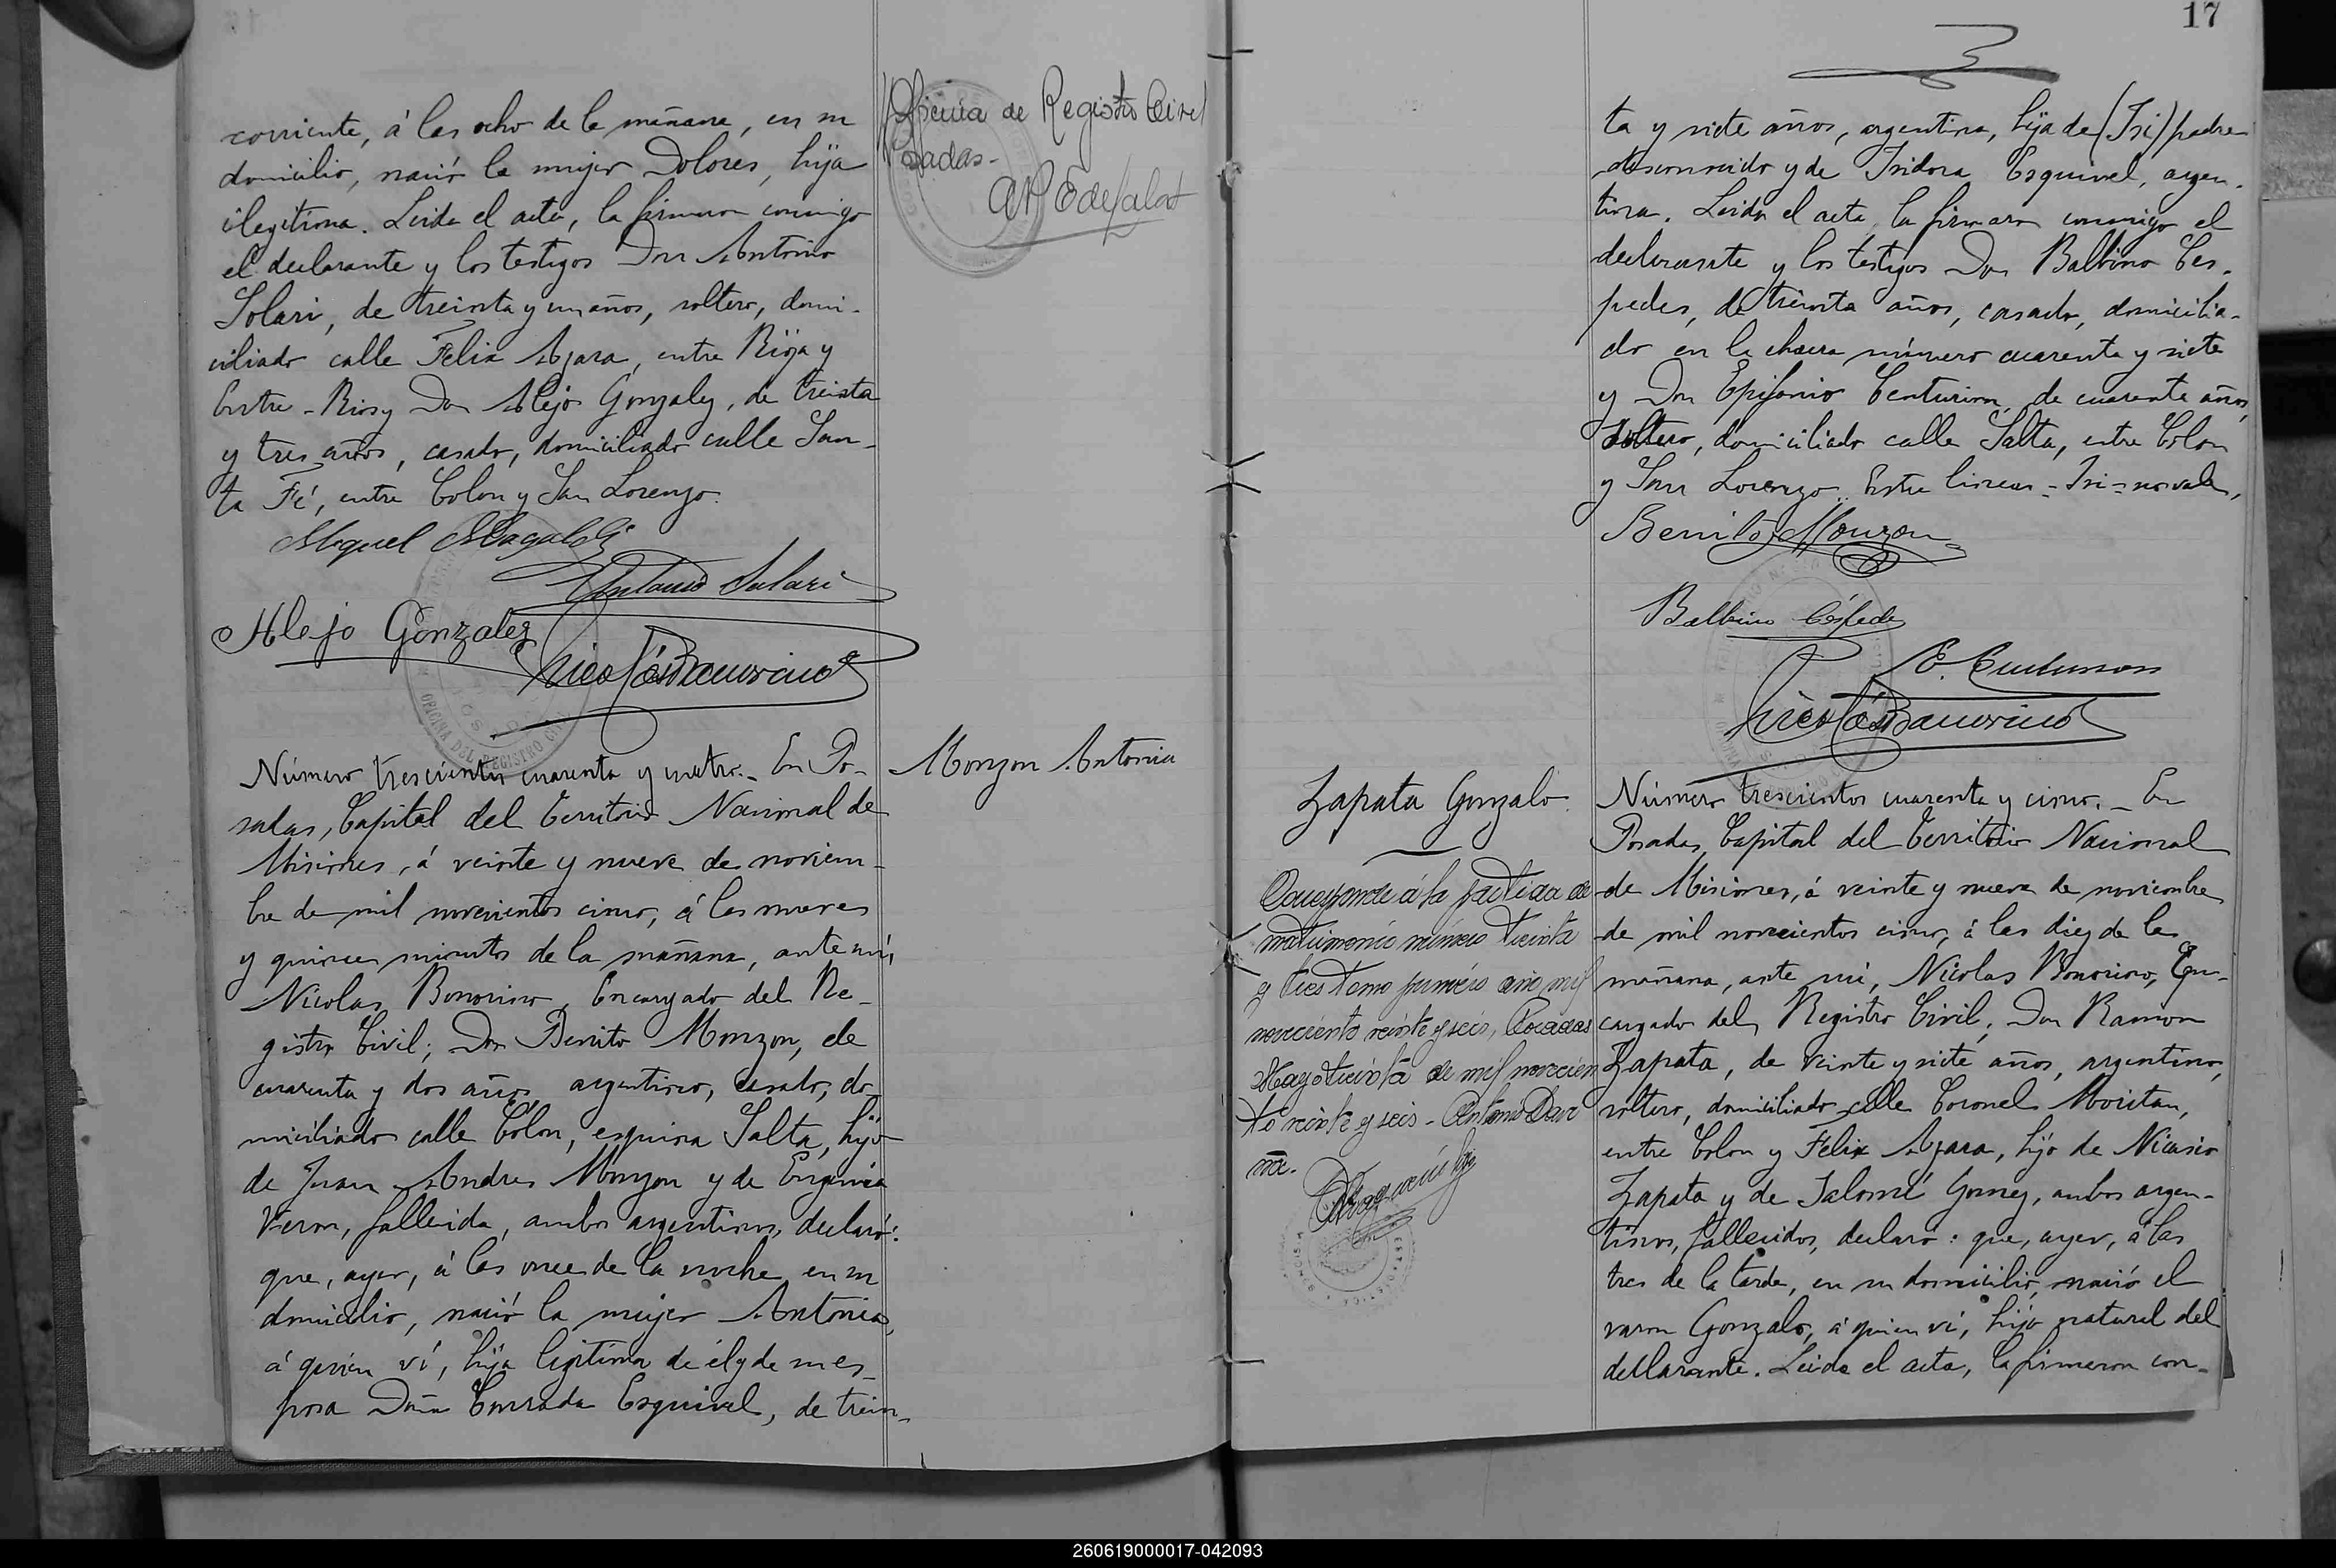 corriente, á las ocho de la mañana, en su
domicilio, nació la mujer Dolores, hija
ilegitima. Leida el acta, la firmaron conmigo
el declarante y los testigos Don Antonio
Solari, de treinta y un años, soltero, domi-
ciliado calle Felix Azara, entre Rioja y
Entre-Rios y Don Alejo Gonzalez, de treinta
y tres años, casado, domiciliado calle San-
ta Fé, entre Colon y San Lorenzo.
Miguel Magaldi
Antonio Solari
Alejo Gonzalez
Nicolás Bonorino
Oficina de Registro Civil
Posadas-
OFICINA DEL REGISTRO CIVIL
Número trescientos cuarenta y cuatro._ En Po-
sadas, Capital del Territorio Nacional de
Misiones, á veinte y nueve de noviem-
bre de mil novecientos cinco, á las nueve
y quince minutos de la mañana, ante mi,
Nicolas Bonorino, Encargado del Re-
gistro Civil; Don Benito Monzon, de
cuarenta y dos años, argentino, casado, do-
miciliado calle Colon, esquina Salta, hijo
de Juan Andres Monzon y de Eugenia
Veron, fallecida, ambos argentinos, declaró:
que, ayer, á las once de la noche, en su
domicilio, nació la mujer Antonia,
á quien ví, hija legitima de él y de su es-
posa Doña Conrada Esquivel, de trein-
Monzon Antonia
17
ta y siete años, argentina, hija de (Isi) padre
desconocido y de Isidora Esquivel, argen-
tina. Leida el acta, la firmaron conmigo el
declarante y los testigos Don Balbino Ces-
pedes, de treinta años, casado, domicilia-
do en la chacra número cuarenta y siete
y Don Epifanio Centurion, de cuarenta años,
soltero, domiciliado calle Salta, entre Colon
y San Lorenzo. Entre lineas - Isi = no vale,
Benito Monzon
Balbino Céspedes
E. Centurion
Nicolás Bonorino
Zapata Gonzalo
Corresponde á la partida de
matrimonio número treinta
y tres tomo primero año mil
noveciento veinte y seis, Posadas
Mayo treinta de mil novecien
to veinte y seis - Antonio
Número trescientos cuarenta y cinco._ En
Posadas, Capital del Territorio Nacional
de Misiones, á veinte y nueve de noviembre
de mil novecientos cinco, á las diez de la
mañana, ante mi, Nicolas Bonorino, En-
cargado del Registro Civil; Don Ramon
Zapata, de veinte y siete años, argentino,
soltero, domiciliado calle Coronel Moritan,
entre Colon y Felix Azara, hijo de Nicasio
Zapata y de Salomé Gomez, ambos argen-
tinos, fallecidos, declaró: que, ayer, á las
tres de la tarde, en su domicilio, nació el
varon Gonzalo, á quien ví, hijo natural del
declarante. Leida el acta, la firmaron con-
260619000017-042093